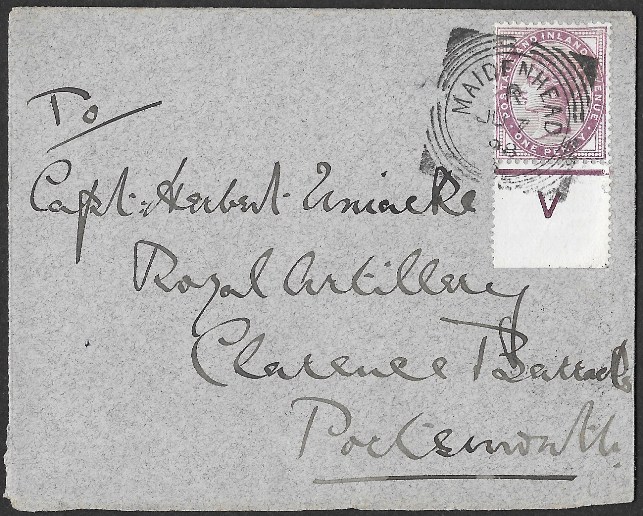 POSTAGE AND INLAND REVENUE
ONE PENNY
MAIDENHEAD
JU
98
To
Capt. Herbert Uniacke
Royal Artillery
Clarence Barracks
Portsmouth